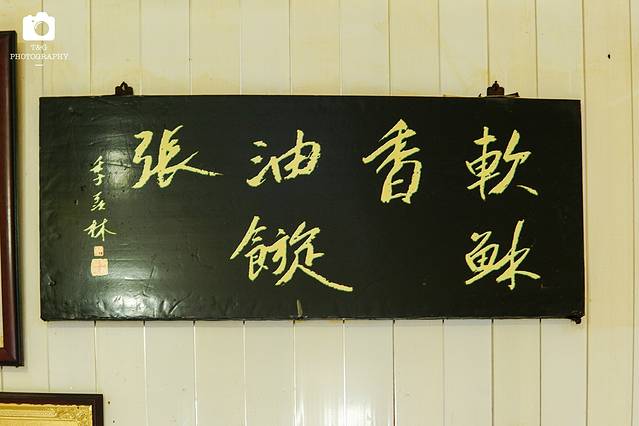 T&G
PHOTOGRAPHY
軟穌
香
油鏇
張
季羨林